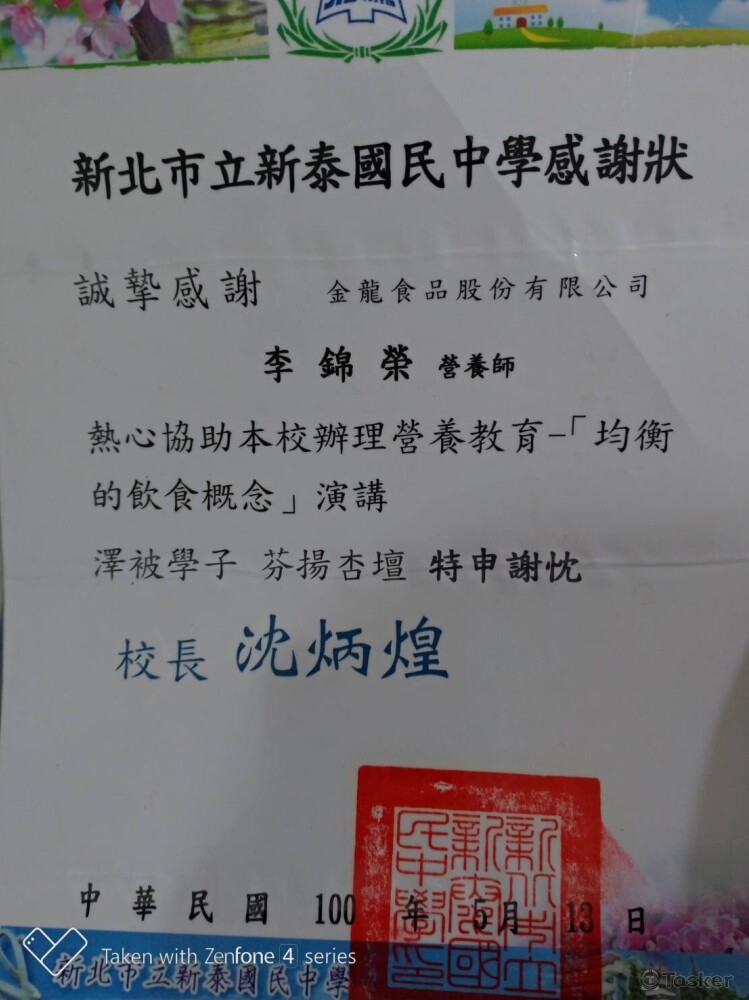 新北市立新泰國民中學感謝狀
誠摯感謝 金龍食品股份有限公司
李錦榮 營養師
熱心協助本校辦理營養教育-「均衡
的飲食概念」演講
澤被學子 芬揚杏壇 特申謝忱
校長 沈炳煌
新北市立
新泰國
民中學印
中華民國 100 年 5月 13 日
Taken with Zenfone 4 series
新北市立新泰國民中學
Tasker